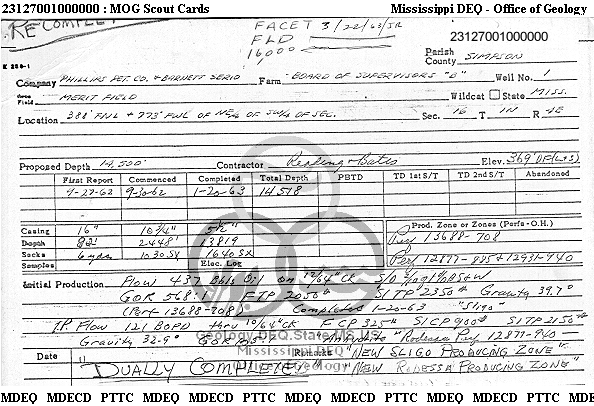 23127001000000 : MOG Scout Cards Mississippi DEQ - Office of Geology
RE-COMPLET FACET 3/22/63/JR
FLD
16,000'
23127001000000
K 258-1
Parish
County SIMPSON
Company PHILLIPS PET. CO. & BARNETT SERIO Farm BOARD OF SUPERVISORS "B" Well No. 1
Field MERIT FIELD Wildcat State MISS.
Location 388' FNL & 773' FWL OF NE/4 OF SW/4 OF SEC. Sec. 16 T 1N R 4E
Proposed Depth 14,500' Contractor Reading & Bates Elev. 369' DF
First Report Commenced Completed Total Depth PBTD TD 1st S/T TD 2nd S/T Abandoned
9-27-62 9-30-62 1-20-63 14,518
Casing 16" 10 3/4" 5 1/2" Prod. Zone or Zones (Perfs-O.H.)
Depth 82' 2448' 13819 Perf 13688-708
Sacks 6 yds 1030 SX 1640 SX Perf 12877-885 & 12931-940
Samples Elec. Log
Initial Production Flow 437 Bbls Oil on 12/64" CK S/D 4/10 of 1% BS&W
GOR 568:1 FTP 2050# SITP 2350# Gravity 39.7°
(Perf 13688-708) Completed 1-20-63 "Sligo"
I.P. Flow 121 BOPD thru 10/64" CK FCP 325# SICP 900# SITP 2150#
Gravity 32.9° GOR "Rodessa Perf 12877-940
Geology.DEQ.State.MS.US/
Mississippi DEQ
Office of Geology
Date Remarks "NEW SLIGO PRODUCING ZONE"
"DUALLY COMPLETED" "NEW RODESSA PRODUCING ZONE"
MDEQ MDECD PTTC MDEQ MDECD PTTC MDEQ MDECD PTTC MDEQ MDECD PTTC MDE